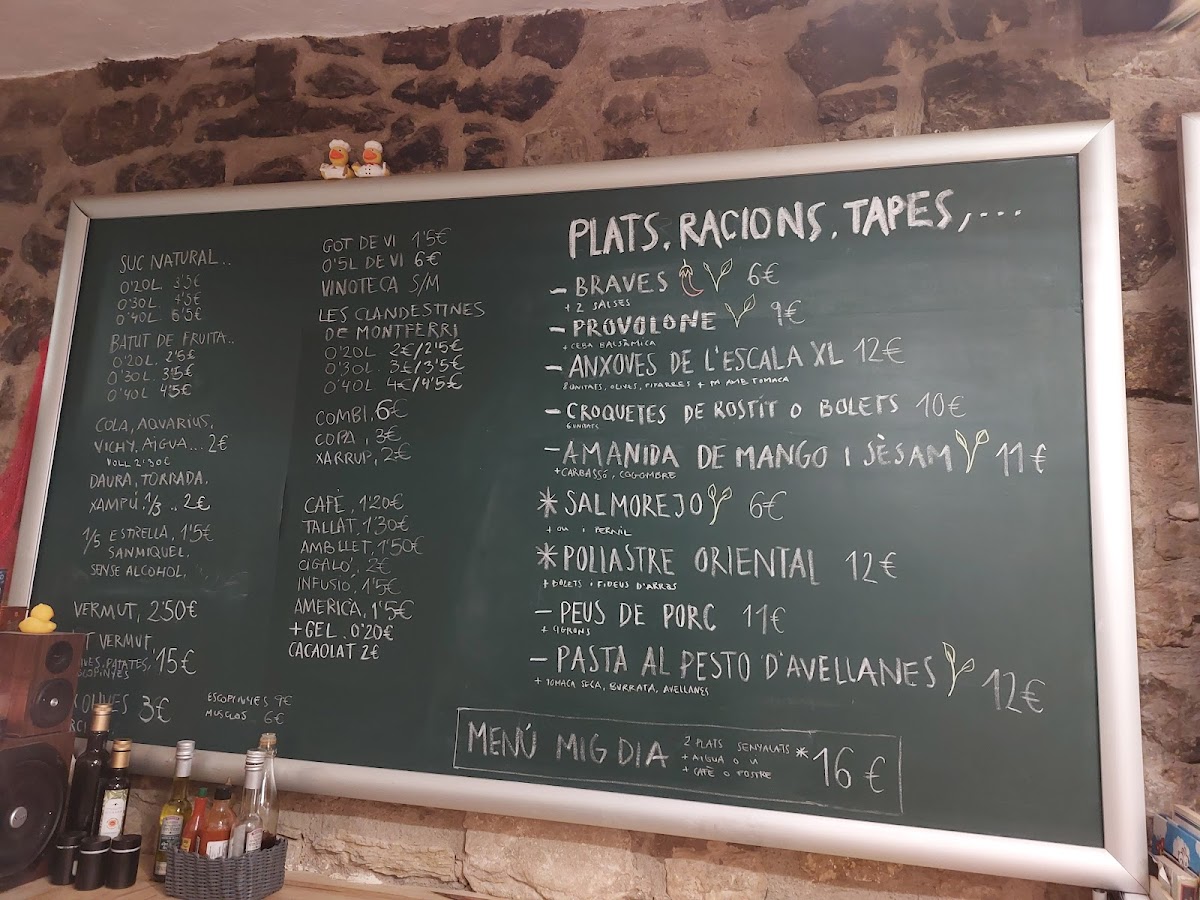 SUC NATURAL..
0'20L. 3'5€
0'30L. 4'5€
0'40L. 6'5€
BATUT DE FRUITA..
0'20L. 2'5€
0'30L. 3'5€
0'40L 4'5€
COLA, AQUARIUS,
VICHY, AIGUA... 2€
VOLL 2'30€
DAURA, TORRADA,
XAMPÚ, 1/3 .. 2€
1/5 ESTRELLA, 1'5€
SANMIQUEL,
SENSE ALCOHOL,
VERMUT, 2'50€
VERMUT,
PATATES, 15€
OLIVES 3€
ESCOPINYES 9€
MUSCLOS 6€
GOT DE VI 1'5€
0'5L DE VI 6€
VINOTECA S/M
LES CLANDESTINES
DE MONTFERRI
0'20L 2€/2'5€
0'30L 3€/3'5€
0'40L 4€/4'5€
COMBI, 6€
COPA, 3€
XARRUP, 2€
CAFÈ, 1'20€
TALLAT, 1'30€
AMB LLET, 1'50€
CIGALÓ, 2€
INFUSIÓ, 1'5€
AMERICÀ, 1'5€
+ GEL. 0'20€
CACAOLAT 2€
PLATS, RACIONS, TAPES,...
- BRAVES 6€
+ 2 SALSES
- PROVOLONE 9€
+ CEBA BALSÀMICA
- ANXOVES DE L'ESCALA XL 12€
8 UNITATS, OLIVES, PIPARRES + PA AMB TOMACA
- CROQUETES DE ROSTIT O BOLETS 10€
6 UNITATS
- AMANIDA DE MANGO I SÈSAM 11€
+ CARBASSÓ, COGOMBRE
* SALMOREJO 6€
+ OU I PERNIL
* POLLASTRE ORIENTAL 12€
+ BOLETS I FIDEUS D'ARRÒS
- PEUS DE PORC 11€
+ CIGRONS
- PASTA AL PESTO D'AVELLANES 12€
+ TOMACA SECA, BURRATA, AVELLANES
MENÚ MIG DIA
2 PLATS SENYALATS *
+ AIGUA O VI
+ CAFÈ O POSTRE
16€